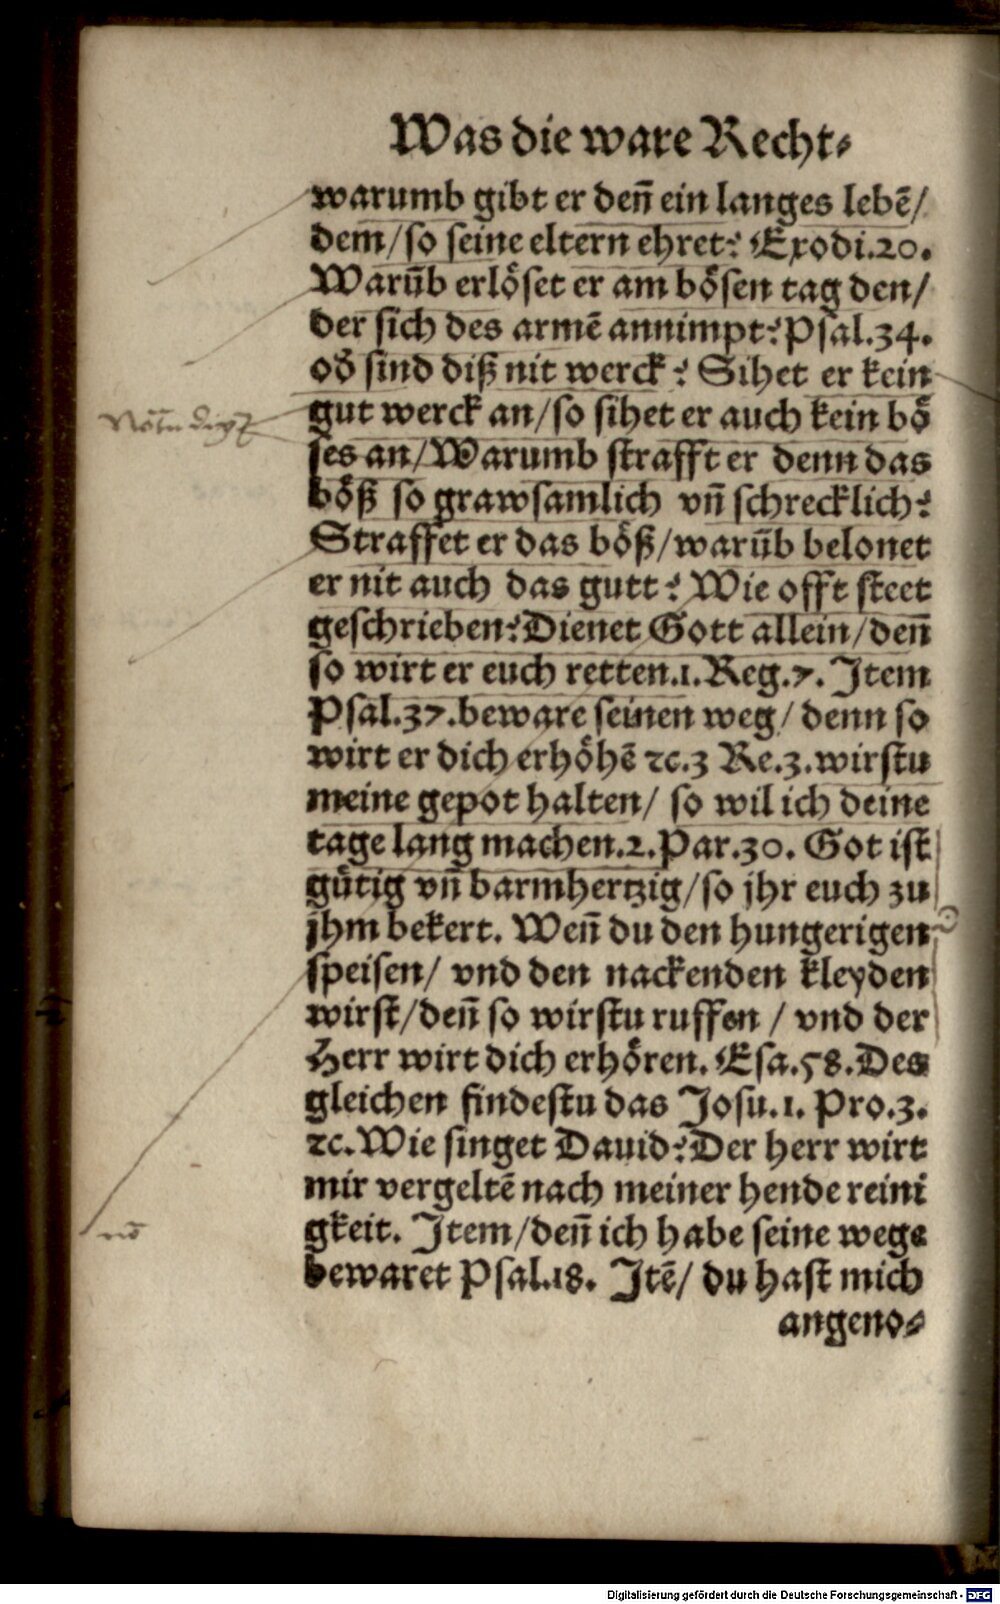 Was die ware Recht⸗
warumb gibt er deñ ein langes lebẽ/
dem/so seine eltern ehret? Exodi.20.
Warũb erlöset er am bösen tag den/
der sich des armẽ annimpt? Psal.34.
od sind diß nit werck? Sihet er kein
gut werck an/so sihet er auch kein bö
ses an/Warumb strafft er denn das
böß so grawsamlich vñ schrecklich?
Straffet er das böß/warũb belonet
er nit auch das gutt? Wie offt steet
geschrieben? Dienet Gott allein/deñ
so wirt er euch retten.1.Reg.7. Item
Psal.37.beware seinen weg/ denn so
wirt er dich erhöhẽ ꝛc.3 Re.3.wirstu
meine gepot halten/ so wil ich deine
tage lang machen.2.Par.30. Got ist
gütig vñ barmhertzig/so jhr euch zu
jhm bekert. Weñ du den hungerigen
speisen/ vnd den nackenden kleyden
wirst/deñ so wirstu ruffen / vnd der
Herr wirt dich erhören. Esa.58. Des
gleichen findestu das Josu.1. Pro.3.
ꝛc. Wie singet Dauid? Der herr wirt
mir vergeltẽ nach meiner hende reini
gkeit. Item/deñ ich habe seine wege
bewaret Psal.18. Itẽ/ du hast mich
angeno⸗
nō
Digitalisierung gefördert durch die Deutsche Forschungsgemeinschaft - DFG